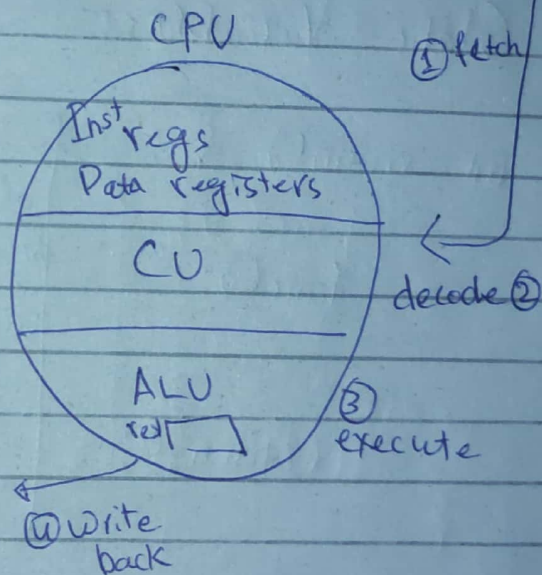 CPU
① fetch
Inst regs
Data registers
CU
decode ②
ALU
③
execute
④ write
back